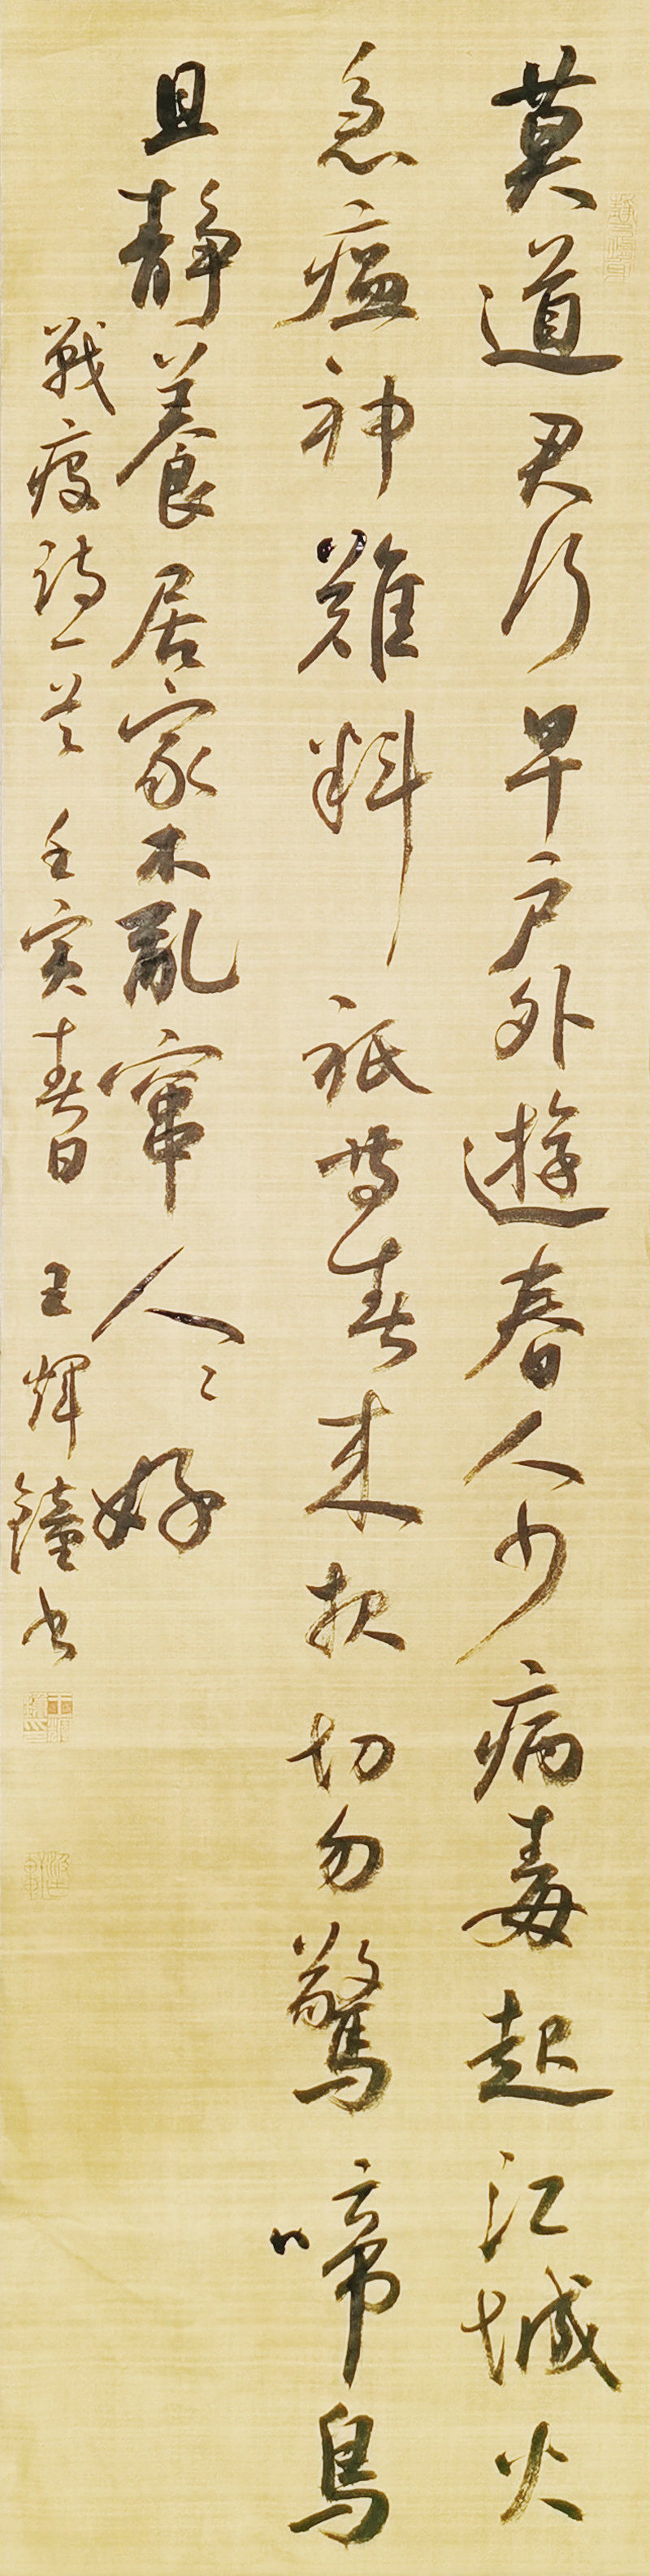 莫道君行早戶外遊春人少病毒起江城火
急瘟神難料祇等春來報切勿驚啼鳥
且靜養居家不亂竄人々好
戰疫詩一首 壬寅春日 王輝鐘書